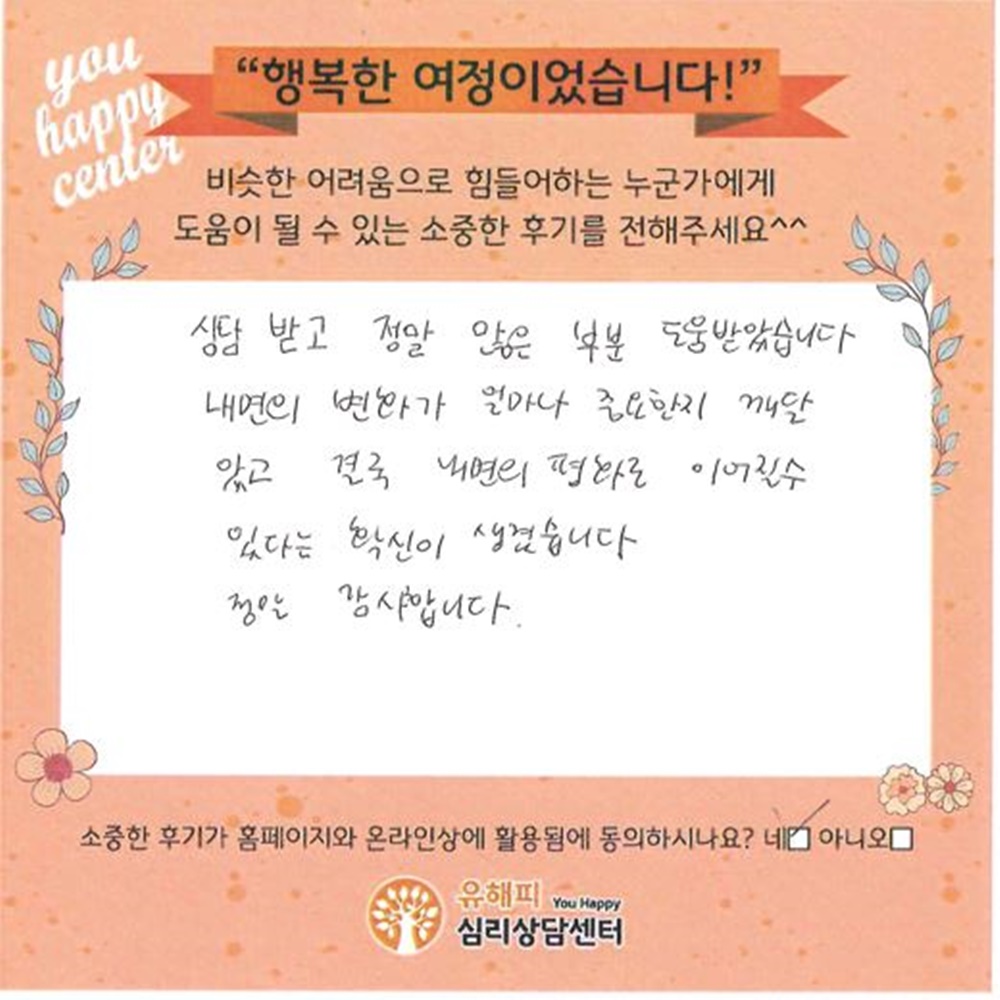 you
happy
center
“행복한 여정이었습니다!”
비슷한 어려움으로 힘들어하는 누군가에게
도움이 될 수 있는 소중한 후기를 전해주세요^^
상담 받고 정말 많은 부분 도움받았습니다
내면의 변화가 얼마나 중요한지 깨달
았고 결국 내면의 평화로 이어질수
있다는 확신이 생겼습니다
정말 감사합니다.
소중한 후기가 홈페이지와 온라인상에 활용됨에 동의하시나요? 네☑ 아니오☐
유해피 You Happy
심리상담센터